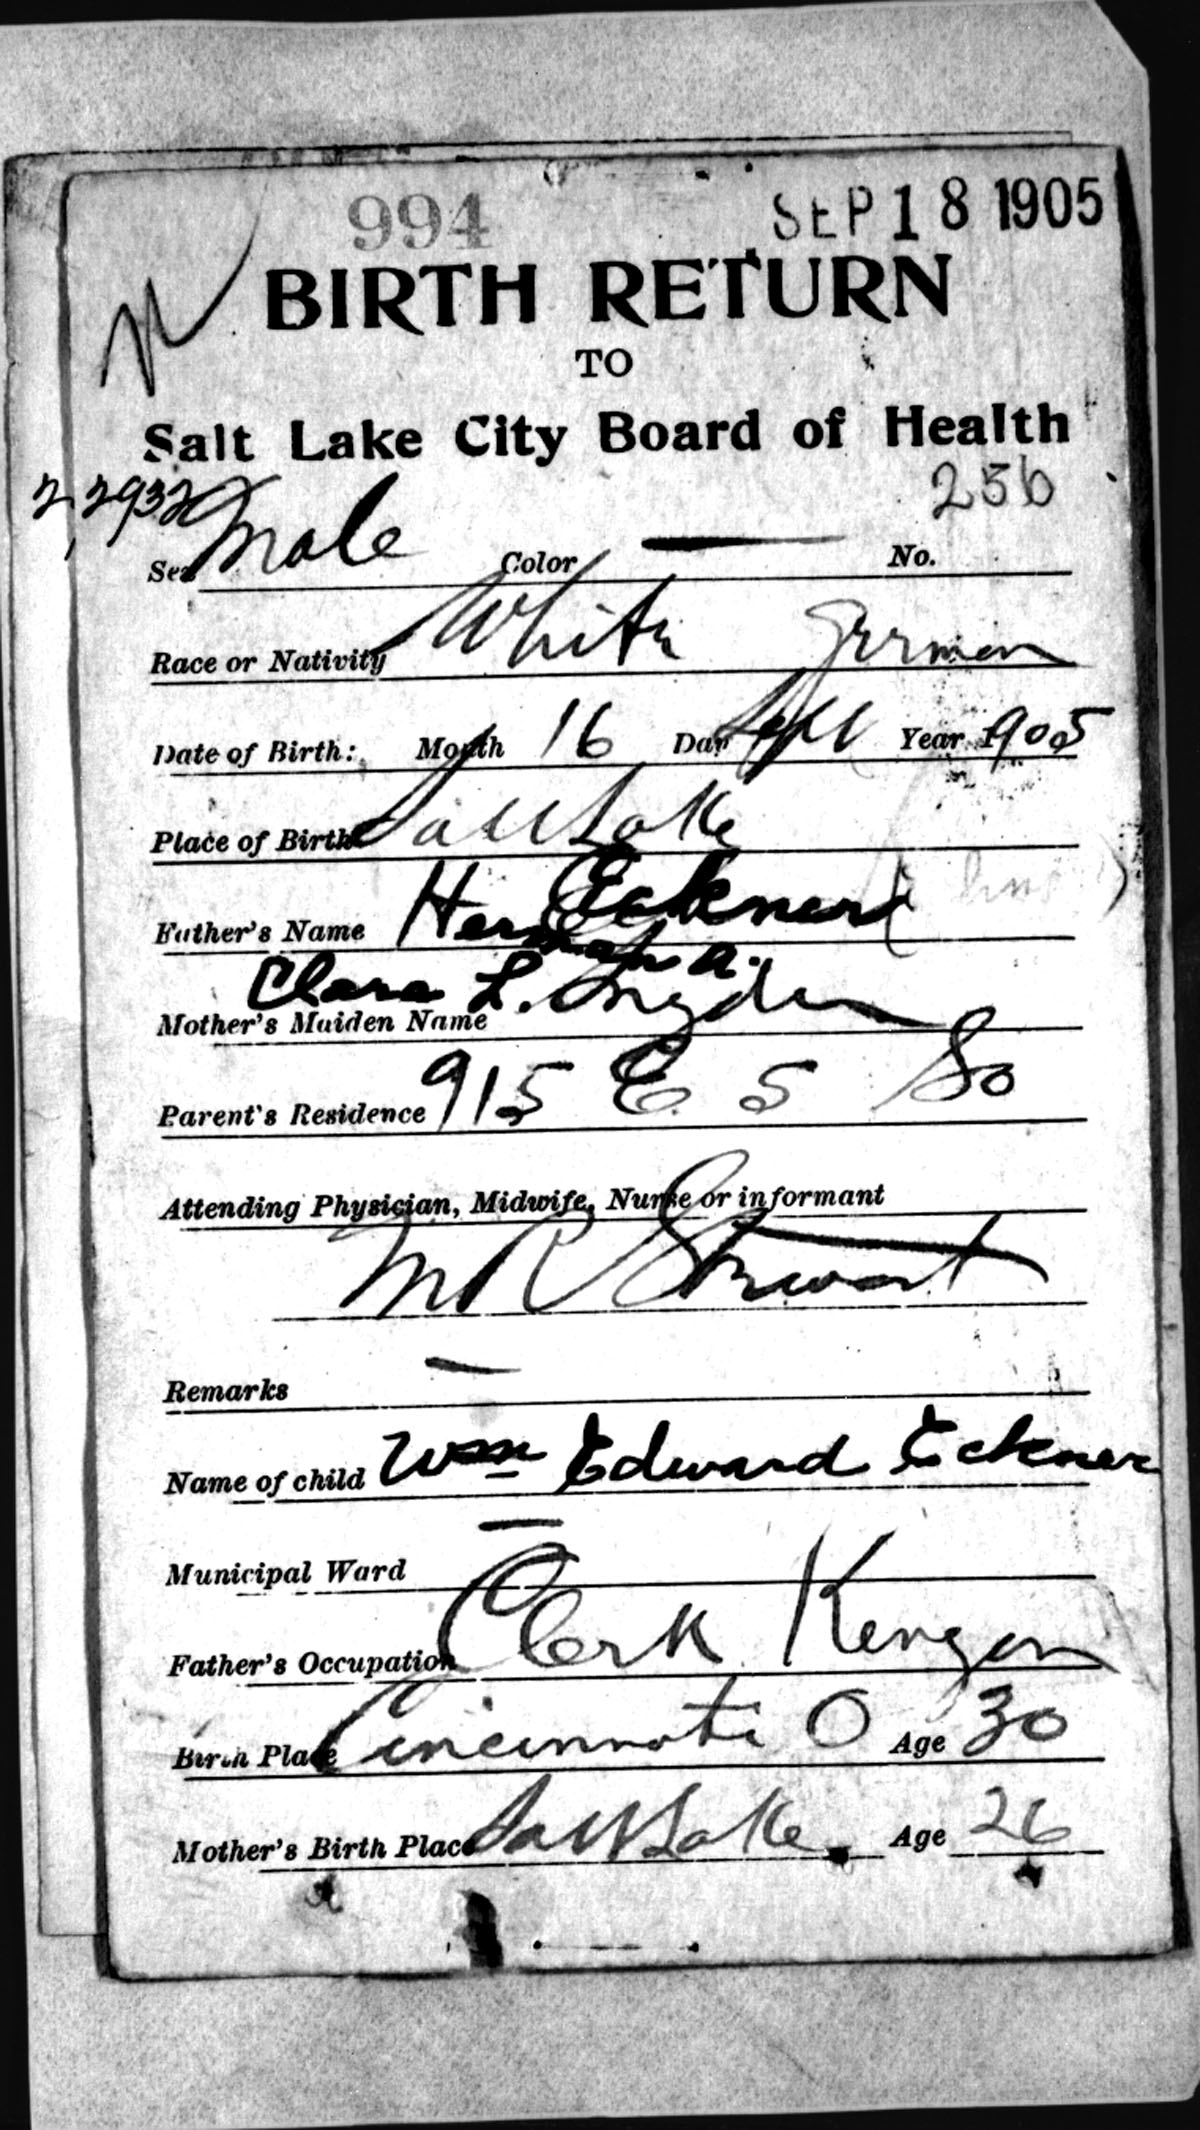 994 SEP 18 1905
BIRTH RETURN
TO
Salt Lake City Board of Health
22932 256
Sex Male Color — No.
Race or Nativity White German
Date of Birth: Month 16 Day Sept Year 1905
Place of Birth Salt Lake
Father's Name Herman A. Eckner
Clara L. Snyder
Mother's Maiden Name
Parent's Residence 915 E 5 So
Attending Physician, Midwife, Nurse or informant
M R Stewart
Remarks —
Name of child Wm Edward Eckner
Municipal Ward —
Father's Occupation Clerk
Birth Place Cincinnati O Age 30
Mother's Birth Place Salt Lake. Age 26